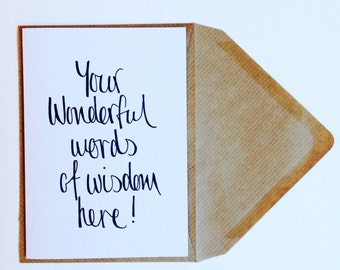 Your
Wonderful
words
of wisdom
here!